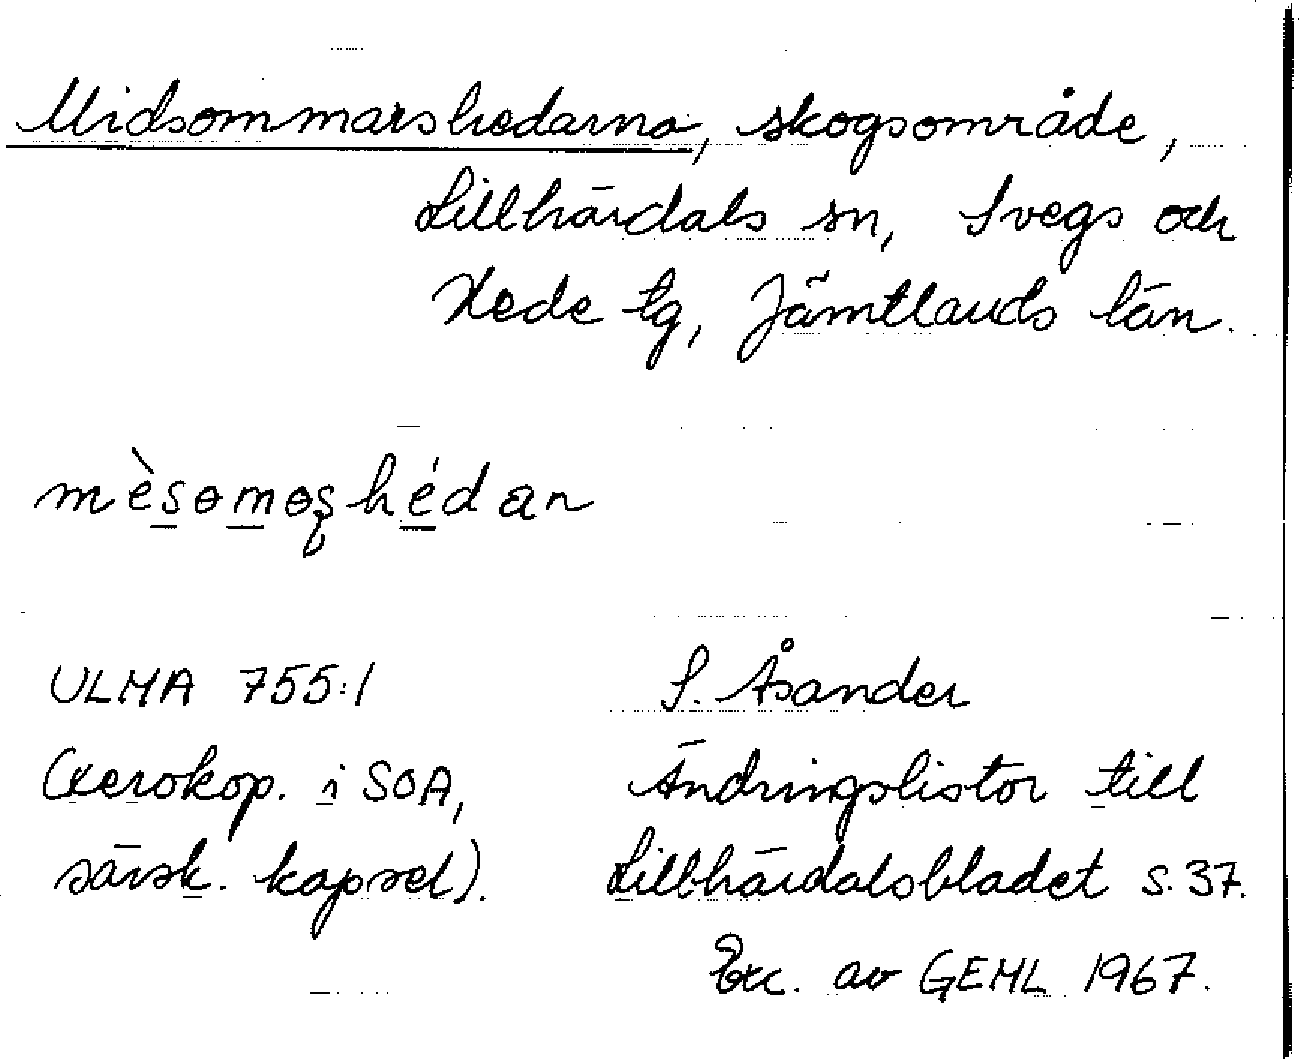 Midsommarshedarna, skogsområde,
Lillhärdals sn, Svegs och
Hede tg, Jämtlands län.
mèsɵmɵʂhédan
ULMA 755:1
(xerokop. i SOA,
särsk. kapsel).
S. Åsander
Ändringslistor till
Lillhärdalsbladet s. 37.
Exc. av GEHL 1967.